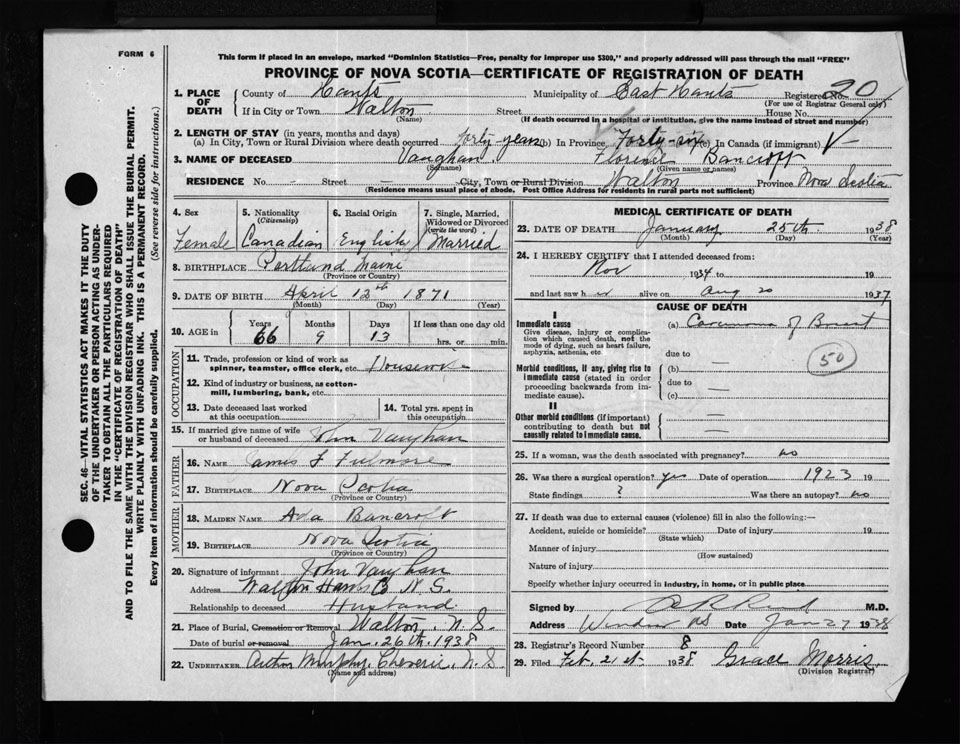 FORM 6
This form if placed in an envelope, marked "Dominion Statistics—Free, penalty for improper use $300," and properly addressed will pass through the mail "FREE"
PROVINCE OF NOVA SCOTIA—CERTIFICATE OF REGISTRATION OF DEATH
1. PLACE OF DEATH
County of Hants Municipality of East Hants Registered No. 20
(For use of Registrar General only)
If in City or Town Walton Street House No.
(Name) (If death occurred in a hospital or institution, give the name instead of street and number)
2. LENGTH OF STAY (in years, months and days)
(a) In City, Town or Rural Division where death occurred forty-years (b) In Province Forty-six (c) In Canada (if immigrant)
3. NAME OF DECEASED Vaughan Florence Bancroft
(Surname) (Given name or names)
RESIDENCE No. - Street - City, Town or Rural Division Walton Province Nova Scotia
(Residence means usual place of abode. Post Office Address for residents in rural parts not sufficient)
4. Sex Female
5. Nationality (Citizenship) Canadian
6. Racial Origin English
7. Single, Married, Widowed or Divorced (write the word) Married
8. BIRTHPLACE Portland Maine
(Province or Country)
9. DATE OF BIRTH April 12th 1871
(Month) (Day) (Year)
10. AGE in Years 66 Months 9 Days 13 If less than one day old hrs. or min.
OCCUPATION
11. Trade, profession or kind of work as spinner, teamster, office clerk, etc. Housewife
12. Kind of industry or business, as cotton-mill, lumbering, bank, etc.
13. Date deceased last worked at this occupation
14. Total yrs. spent in this occupation
15. If married give name of wife or husband of deceased John Vaughan
FATHER
16. NAME James F Fulmore
17. BIRTHPLACE Nova Scotia
(Province or Country)
MOTHER
18. MAIDEN NAME Ada Bancroft
19. BIRTHPLACE Nova Scotia
(Province or Country)
20. Signature of informant John Vaughan
Address Walton Hants Co N.S.
Relationship to deceased Husband
21. Place of Burial, Cremation or Removal Walton, N.S.
Date of burial or removal Jan. 26th, 1938
22. UNDERTAKER Arthur Murphy, Cheverie, N.S
(Name and address)
MEDICAL CERTIFICATE OF DEATH
23. DATE OF DEATH January 25th 1938
(Month) (Day) (Year)
24. I HEREBY CERTIFY that I attended deceased from:
Nov 1934 to 19
and last saw h er alive on Aug 20 1937
CAUSE OF DEATH
I
Immediate cause
Give disease, injury or complication which caused death, not the mode of dying, such as heart failure, asphyxia, asthenia, etc.
(a) Carcinoma of Breast
50
due to
Morbid conditions, if any, giving rise to immediate cause (stated in order proceeding backwards from immediate cause).
(b)
due to
(c)
II
Other morbid conditions (if important) contributing to death but not causally related to immediate cause.
25. If a woman, was the death associated with pregnancy? no
26. Was there a surgical operation? yes Date of operation 1923
State findings ? Was there an autopsy? no
27. If death was due to external causes (violence) fill in also the following:—
Accident, suicide or homicide? Date of injury 19
(State which)
Manner of injury
(How sustained)
Nature of injury
Specify whether injury occurred in industry, in home, or in public place
Signed by M.D.
Address Windsor NS Date Jan 27 1938
28. Registrar's Record Number 8
29. Filed Feb. 21st 1938 Grace Morris
(Division Registrar)
SEC. 46—VITAL STATISTICS ACT MAKES IT THE DUTY
OF THE UNDERTAKER OR PERSON ACTING AS UNDER-
TAKER TO OBTAIN ALL THE PARTICULARS REQUIRED
IN THE "CERTIFICATE OF REGISTRATION OF DEATH" AND
TO FILE THE SAME WITH THE DIVISION REGISTRAR WHO SHALL ISSUE THE BURIAL PERMIT.
WRITE PLAINLY WITH UNFADING INK. THIS IS A PERMANENT RECORD.
Every item of information should be carefully supplied. (See reverse side for instructions.)